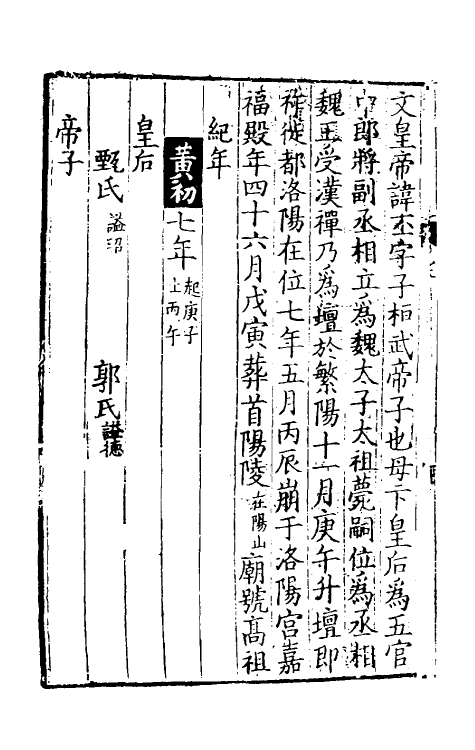 文皇帝諱丕字子桓武帝子也母卞皇后爲五官
中郎將副丞相立爲魏太子太祖薨嗣位爲丞相
魏王受漢禪乃爲壇於繁陽十一月庚午升壇即
祚徙都洛陽在位七年五月丙辰崩于洛陽宮嘉
福殿年四十六月戊寅葬首陽陵在陽山廟號高祖
紀年
黃初七年起庚子止丙午
皇后
甄氏謚昭 郭氏謚德
帝子